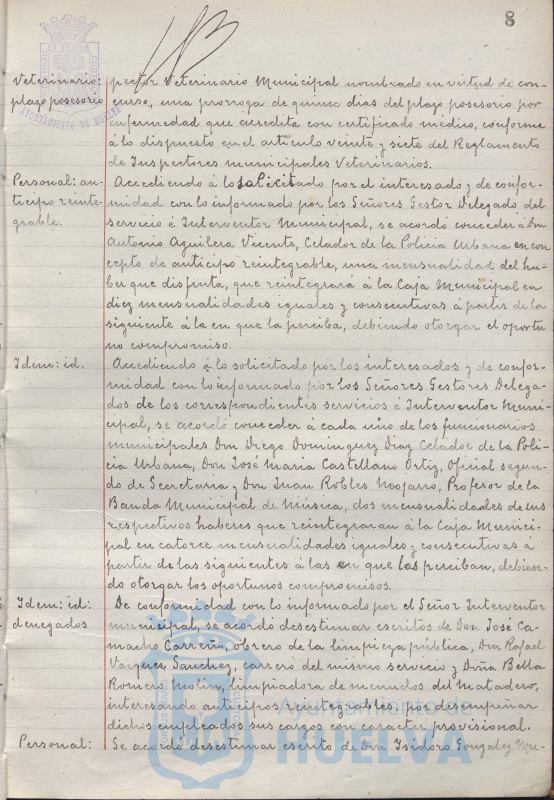 8
Veterinario: pector Veterinario Municipal nombrado en virtud de con-
plazo posesorio curso, una prorroga de quince dias del plazo posesorio por
enfermedad que acredita con certificado médico, conforme
á lo dispuesto en el artículo veinte y siete del Reglamento
de Inspectores municipales Veterinarios.
Personal: an- Accediendo á lo solicitado por el interesado y de confor-
ticipo reinte- midad con lo informado por los Señores Gestor Delegado del
grable. servicio é Interventor Municipal, se acordó conceder á Don
Antonio Aguilera Vicente, Celador de la Policia Urbana en con
cepto de anticipo reintegrable, una mensualidad del ha-
ber que disfruta, que reintegrará á la Caja Municipal en
diez mensualidades iguales y consecutivas á partir de la
siguiente á la en que la perciba, debiendo otorgar el oportu
no compromiso.
Idem: id. Accediendo á lo solicitado por los interesados y de confor-
midad con lo informado por los Señores Gestores Delega-
dos de los correspondientes servicios é Interventor Muni-
cipal, se acordó conceder á cada uno de los funcionarios
municipales Don Diego Dominguez Diaz Celador de la Poli-
cia Urbana, Don José Maria Castellano Ortiz, Oficial segun-
do de Secretaria y Don Juan Robles Mojarro, Profesor de la
Banda Municipal de Música, dos mensualidades de sus
respectivos haberes que reintegraran á la Caja Munici-
pal en catorce mensualidades iguales y consecutivas á
partir de las siguientes á las en que las perciban, debien-
do otorgar los oportunos compromisos.
Idem: id: De conformidad con lo informado por el Señor Interventor
denegados municipal, se acordó desestimar escritos de Don José Ca-
macho Carreño, obrero de la limpieza pública, Don Rafael
Vazquez Sanchez, carrero del mismo servicio y Doña Bella
Romero limpiadora de menudos del Matadero,
interesando anticipos reintegrables, por desempeñar
dichos empleados sus cargos con caracter provisional.
Personal: Se acordó desestimar escrito de Don Isidoro Gonzalez
AYUNTAMIENTO DE HUELVA
Ayuntamiento de
HUELVA